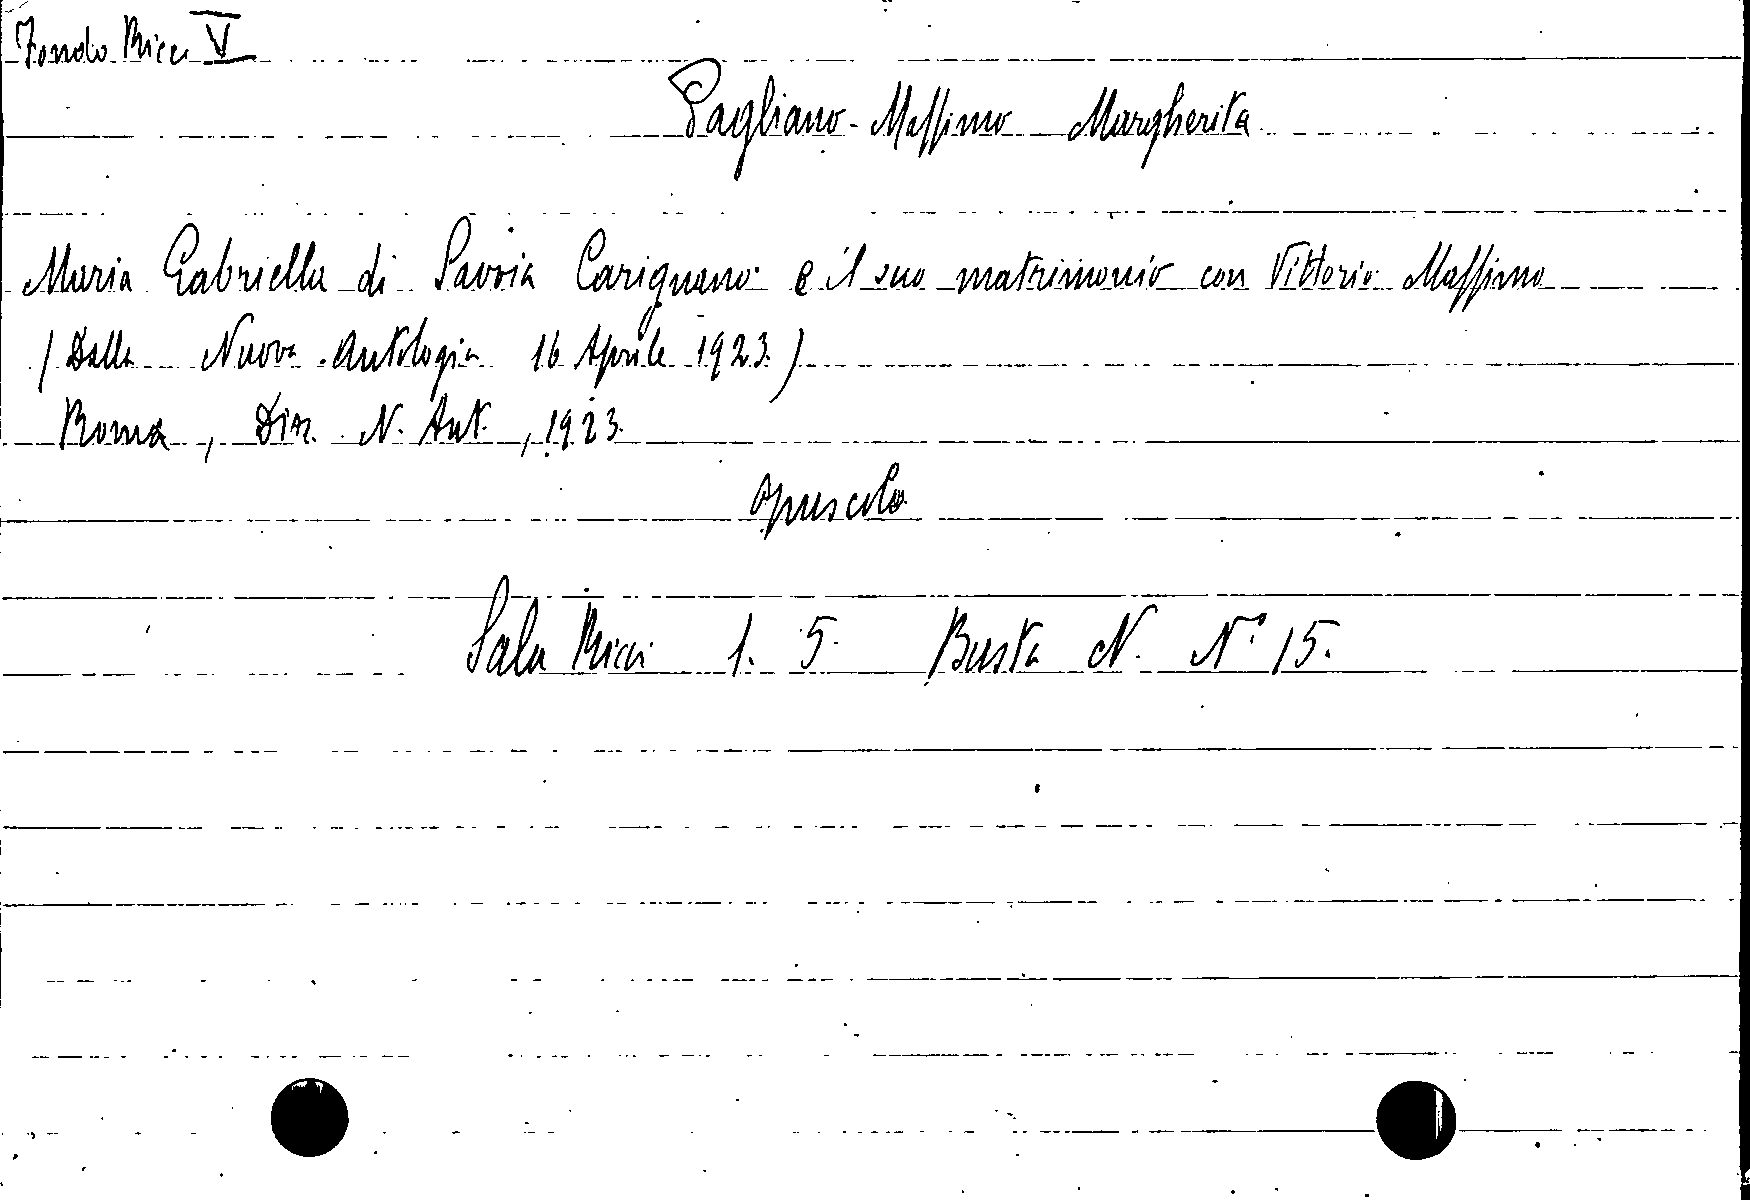 Fondo Ricci V
Pagliano-Massimo Margherita
Maria Gabriella di Savoia Carignano e il suo matrimonio con Vittorio Massimo
(Dalla Nuova Antologia 16 Aprile 1923.)
Roma, Dir. N. Ant., 1923.
opuscolo
Sala Ricci 1. 5. Busta N. N° 15.